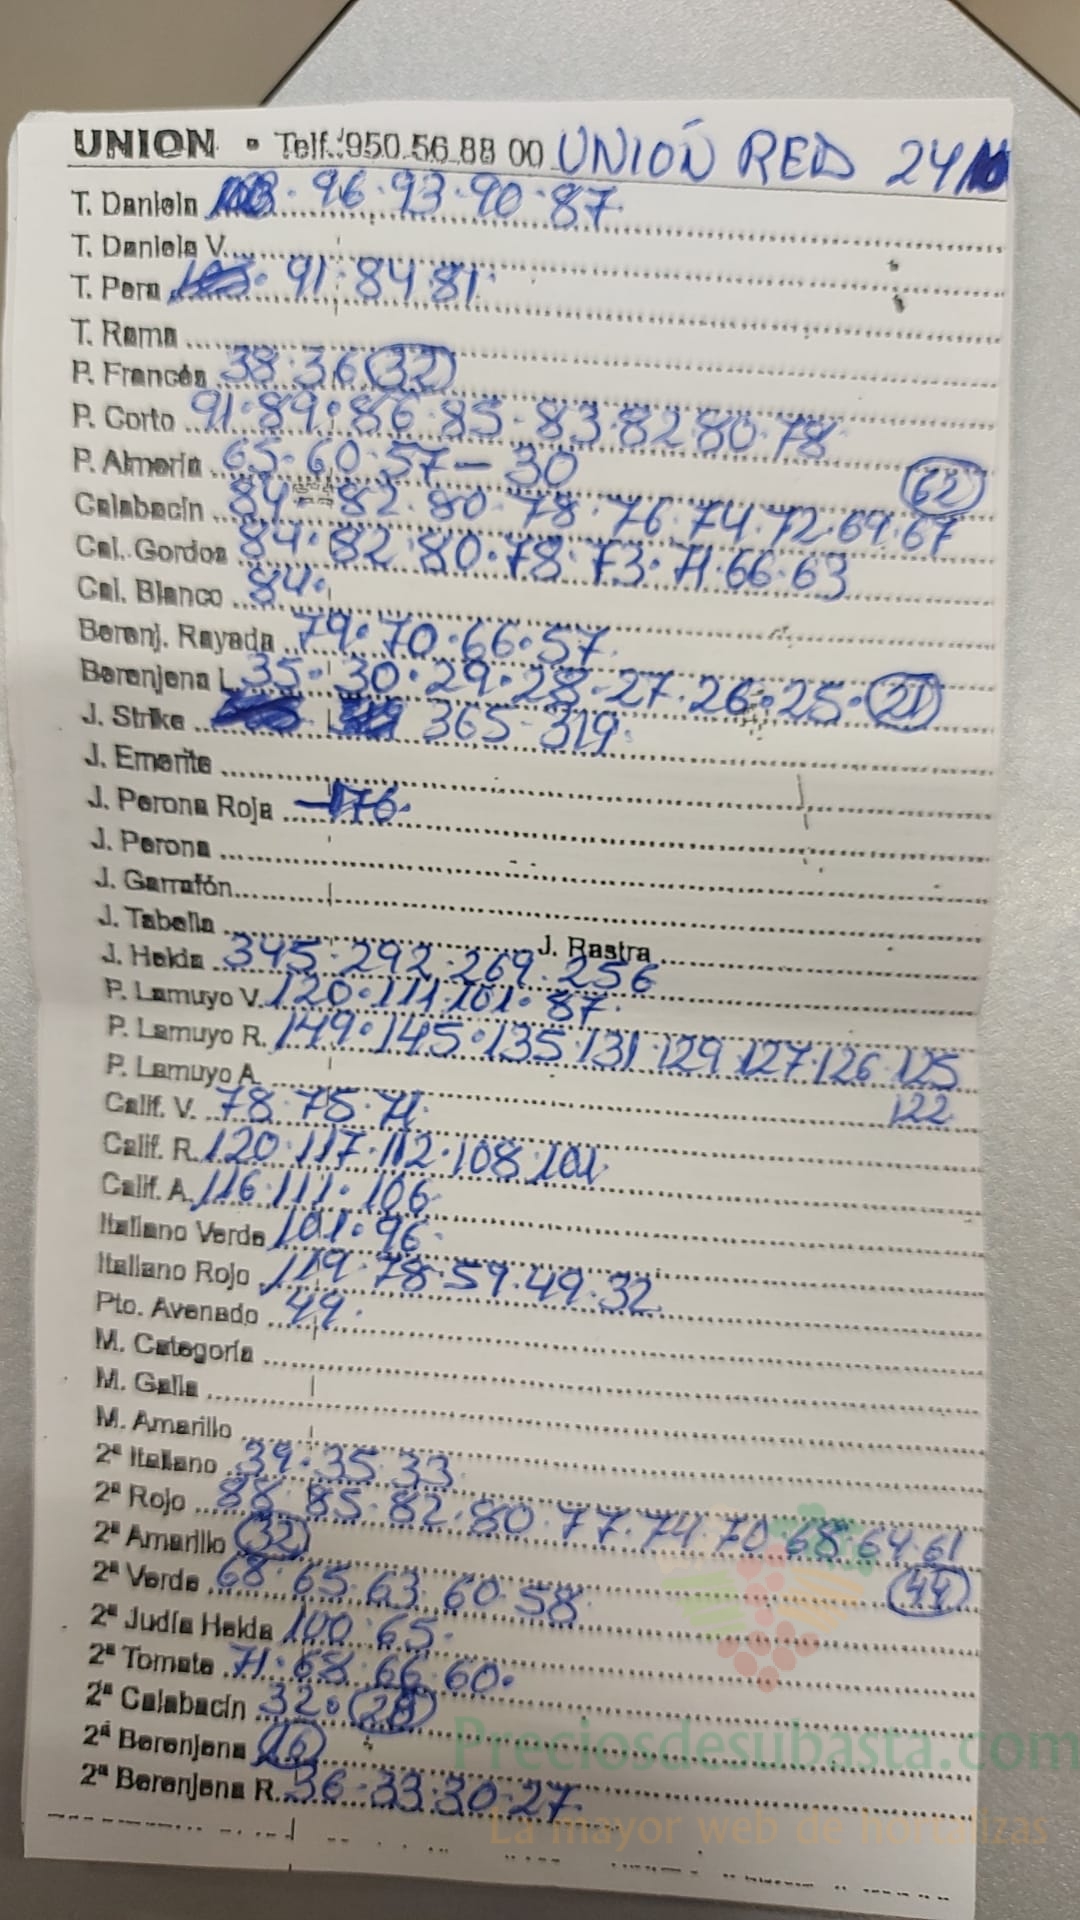 UNION • Telf.:950.56.88 00 UNIÓN RED 24/10
T. Daniela 103 . 96 . 93 . 90 . 87
T. Daniela V.
T. Pera . 91 . 84 81
T. Rama
P. Francés 38 . 36 (32)
P. Corto 91 . 89 . 86 . 85 - 83 . 82 80 . 78
P. Almería 65 - 60 . 57 - 30 (62)
Calabacín 84 - 82 . 80 . 78 . 76 . 74 . 72 . 69 . 67
Cal. Gordos 84 . 82 80 . 78 . 73 . 71 . 66 . 63
Cal. Blanco 84 .
Berenj. Rayada 79 . 70 . 66 . 57
Berenjena L 35 . 30 . 29 . 28 - 27 . 26 . 25 . (21)
J. Strike 365 - 319
J. Emerite
J. Perona Roja 176 .
J. Perona
J. Garrafón
J. Tabella J. Rastra
J. Helda 345 . 292 . 269 . 256
P. Lamuyo V. 120 . 111 . 101 . 87 .
P. Lamuyo R. 149 . 145 . 135 . 131 . 129 . 127 . 126 . 125
P. Lamuyo A. 122
Calif. V. 78 . 75 . 71
Calif. R. 120 . 117 . 112 . 108 . 101
Calif. A. 116 . 111 . 106
Italiano Verde 101 . 96 .
Italiano Rojo 119 . 78 . 59 . 49 . 32
Pto. Avenado 49 .
M. Categoría
M. Galia
M. Amarillo
2ª Italiano 39 . 35 . 33
2ª Rojo 88 . 85 . 82 . 80 . 77 . 74 . 70 . 68 . 64 . 61
2ª Amarillo (32) (44)
2ª Verde 68 . 65 . 63 . 60 . 58
2ª Judía Helda 100 . 65 .
2ª Tomate 71 . 68 . 66 . 60 .
2ª Calabacín 32 . (28)
2ª Berenjena (16)
2ª Berenjena R. 36 - 33 . 30 . 27
Preciosdesubasta.com
La mayor web de hortalizas